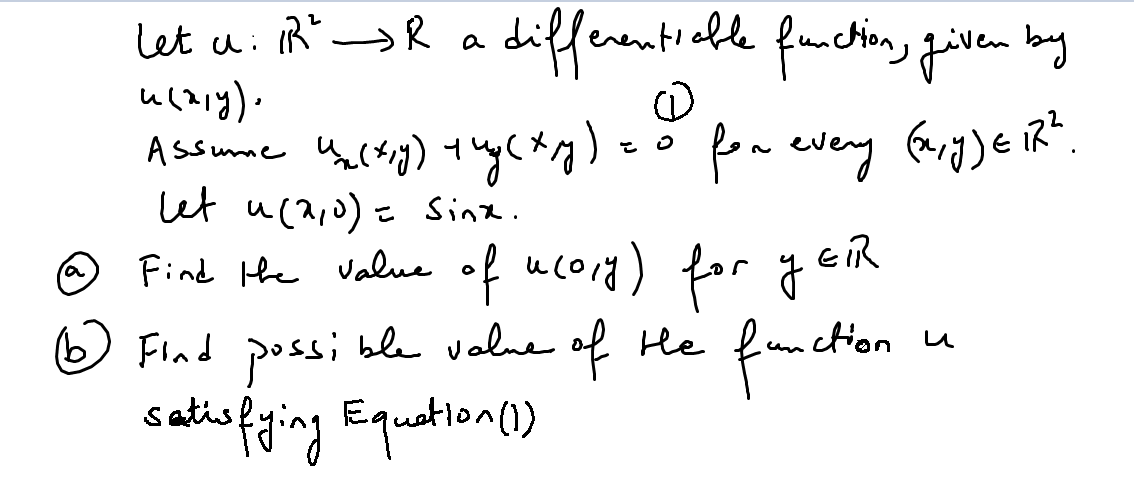 Let u: ℝ² → ℝ a differentiable function, given by
u(x,y).
Assume uₓ(x,y) + u_y(x,y) = 0 ① for every (x,y) ∈ ℝ².
Let u(x,0) = sinx.
ⓐ Find the value of u(0,y) for y ∈ ℝ
ⓑ Find possible value of the function u
satisfying Equation(1)